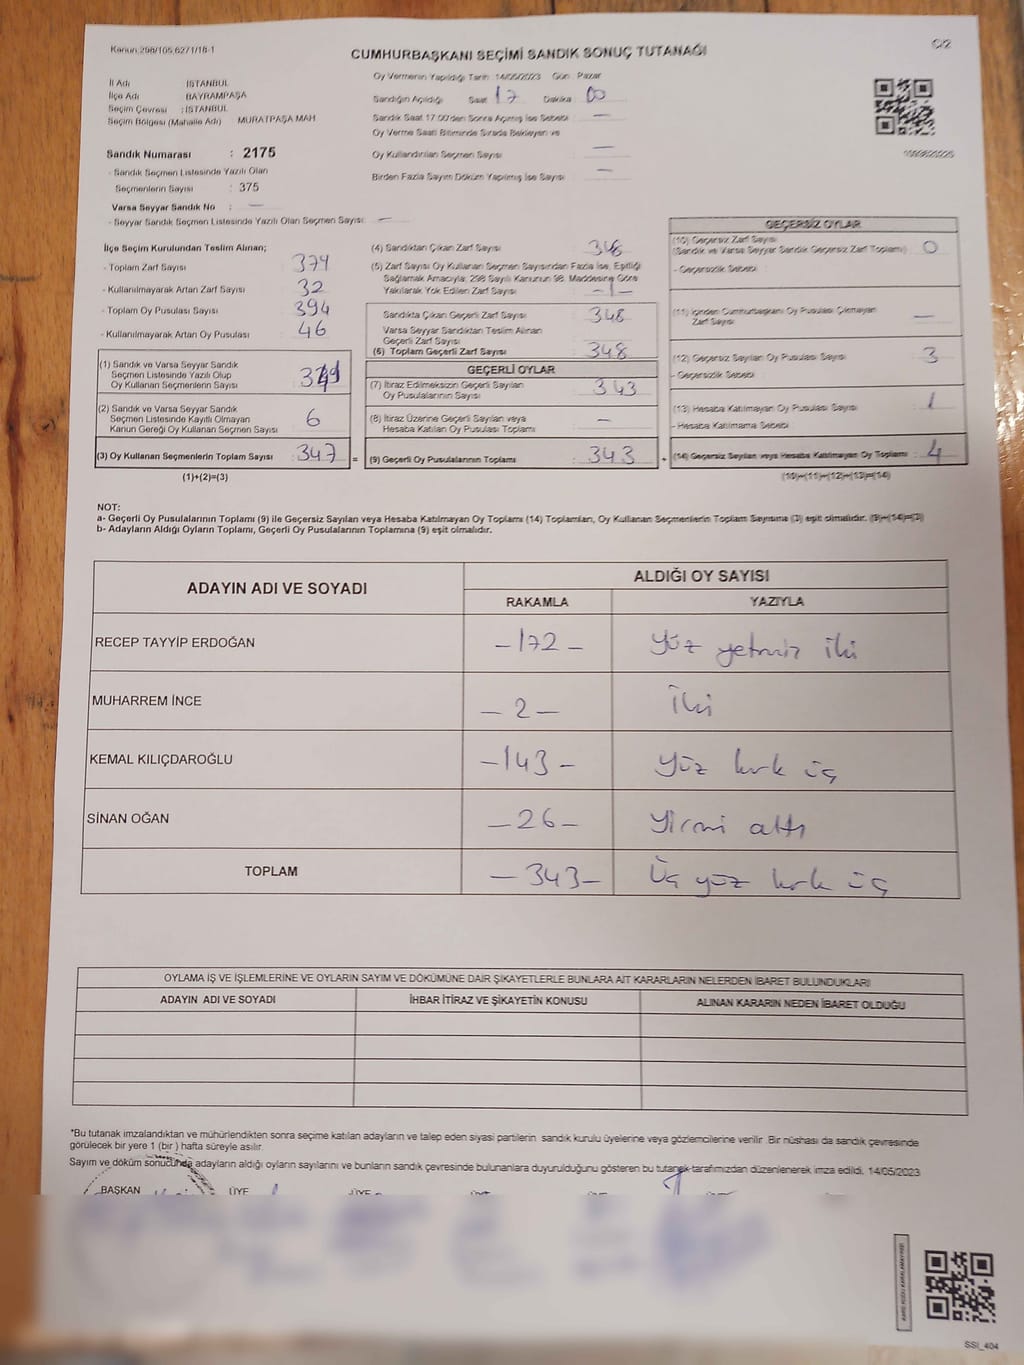 Kanun:298/105,6271/18-1
C/2
CUMHURBAŞKANI SEÇİMİ SANDIK SONUÇ TUTANAĞI
İl Adı : İSTANBUL
İlçe Adı : BAYRAMPAŞA
Seçim Çevresi : İSTANBUL
Seçim Bölgesi (Mahalle Adı) MURATPAŞA MAH.
Sandık Numarası : 2175
- Sandık Seçmen Listesinde Yazılı Olan
Seçmenlerin Sayısı : 375
Varsa Seyyar Sandık No : —
- Seyyar Sandık Seçmen Listesinde Yazılı Olan Seçmen Sayısı : —
Oy Vermenin Yapıldığı Tarih : 14/05/2023 Gün : Pazar
Sandığın Açıldığı Saat 17 Dakika 00
Sandık Saat 17.00'den Sonra Açılmış İse Sebebi : —
Oy Verme Saati Bitiminde Sırada Bekleyen ve
Oy Kullandırılan Seçmen Sayısı : —
Birden Fazla Sayım Döküm Yapılmış İse Sayısı : —
İlçe Seçim Kurulundan Teslim Alınan;
- Toplam Zarf Sayısı : 379
- Kullanılmayarak Artan Zarf Sayısı : 32
- Toplam Oy Pusulası Sayısı : 394
- Kullanılmayarak Artan Oy Pusulası : 46
(1) Sandık ve Varsa Seyyar Sandık
Seçmen Listesinde Yazılı Olup
Oy Kullanan Seçmenlerin Sayısı
(2) Sandık ve Varsa Seyyar Sandık
Seçmen Listesinde Kayıtlı Olmayan
Kanun Gereği Oy Kullanan Seçmen Sayısı 6
(3) Oy Kullanan Seçmenlerin Toplam Sayısı : 347 =
(1)+(2)=(3)
(4) Sandıktan Çıkan Zarf Sayısı : 348
(5) Zarf Sayısı Oy Kullanan Seçmen Sayısından Fazla İse, Eşitliği
Sağlamak Amacıyla; 298 Sayılı Kanunun 98. Maddesine Göre
Yakılarak Yok Edilen Zarf Sayısı : -1-
Sandıkta Çıkan Geçerli Zarf Sayısı : 348
Varsa Seyyar Sandıktan Teslim Alınan
Geçerli Zarf Sayısı
(6) Toplam Geçerli Zarf Sayısı : 348
GEÇERLİ OYLAR
(7) İtiraz Edilmeksizin Geçerli Sayılan
Oy Pusulalarının Sayısı : 343
(8) İtiraz Üzerine Geçerli Sayılan veya
Hesaba Katılan Oy Pusulası Toplamı : —
(9) Geçerli Oy Pusulalarının Toplamı : 343 +
GEÇERSİZ OYLAR
(10) Geçersiz Zarf Sayısı
(Sandık ve Varsa Seyyar Sandık Geçersiz Zarf Toplamı) : 0
- Geçersizlik Sebebi :
(11) İçinden Cumhurbaşkanı Oy Pusulası Çıkmayan
Zarf Sayısı : —
(12) Geçersiz Sayılan Oy Pusulası Sayısı : 3
- Geçersizlik Sebebi
(13) Hesaba Katılmayan Oy Pusulası Sayısı : 1
- Hesaba Katılmama Sebebi
(14) Geçersiz Sayılan veya Hesaba Katılmayan Oy Toplamı : 4
(10)+(11)+(12)+(13)=(14)
NOT:
a- Geçerli Oy Pusulalarının Toplamı (9) ile Geçersiz Sayılan veya Hesaba Katılmayan Oy Toplamı (14) Toplamları, Oy Kullanan Seçmenlerin Toplam Sayısına (3) eşit olmalıdır. (9)+(14)=(3)
b- Adayların Aldığı Oyların Toplamı, Geçerli Oy Pusulalarının Toplamına (9) eşit olmalıdır.
ADAYIN ADI VE SOYADI ALDIĞI OY SAYISI
RAKAMLA YAZIYLA
RECEP TAYYİP ERDOĞAN -172- Yüz yetmiz iki
MUHARREM İNCE -2- İki
KEMAL KILIÇDAROĞLU -143- Yüz kırk üç
SİNAN OĞAN -26- Yirmi altı
TOPLAM -343- Üç yüz kırk üç
OYLAMA İŞ VE İŞLEMLERİNE VE OYLARIN SAYIM VE DÖKÜMÜNE DAİR ŞİKAYETLERLE BUNLARA AİT KARARLARIN NELERDEN İBARET BULUNDUKLARI
ADAYIN ADI VE SOYADI İHBAR İTİRAZ VE ŞİKAYETİN KONUSU ALINAN KARARIN NEDEN İBARET OLDUĞU
*Bu tutanak imzalandıktan ve mühürlendikten sonra seçime katılan adayların ve talep eden siyasi partilerin sandık kurulu üyelerine veya gözlemcilerine verilir. Bir nüshası da sandık çevresinde
görülecek bir yere 1 (bir ) hafta süreyle asılır.
Sayım ve döküm sonucunda adayların aldığı oyların sayılarını ve bunların sandık çevresinde bulunanlara duyurulduğunu gösteren bu tutanak tarafımızdan düzenlenerek imza edildi. 14/05/2023
BAŞKAN ÜYE ÜYE
SSI_404